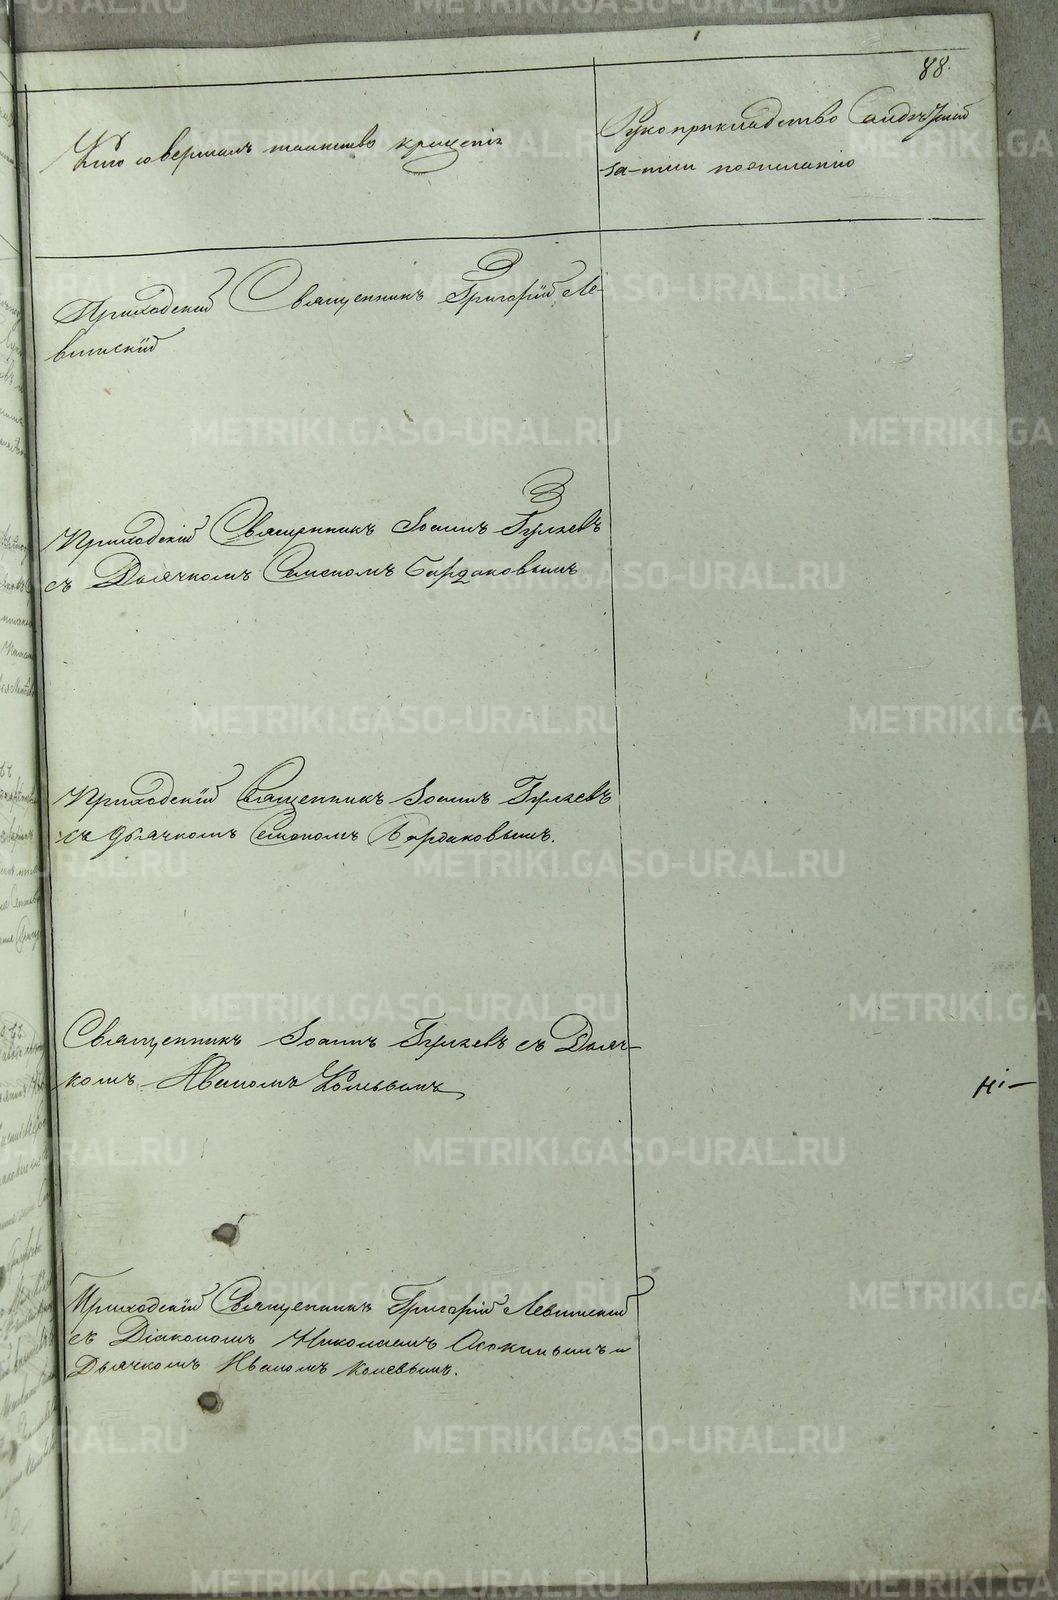 88.
Кто совершалъ таинство крещенія
Рукоприкладство свидѣтелей
записи по желанію
Приходскій Священникъ Григорій Ле-
витскій
Приходскій Священникъ Іоаннъ Гуляевъ
съ Дьячкомъ Семеномъ Бардаковымъ
Приходскій Священникъ Іоаннъ Гуляевъ
съ дьячкомъ Семеномъ Бардаковымъ.
Священникъ Іоаннъ Гуляевъ съ Дьяч-
комъ Иваномъ
Приходскій Священникъ Григорій Левитскій
съ Діакономъ Николаемъ Асокинымъ и
Дьячкомъ Иваномъ
METRIKI.GASO-URAL.RU